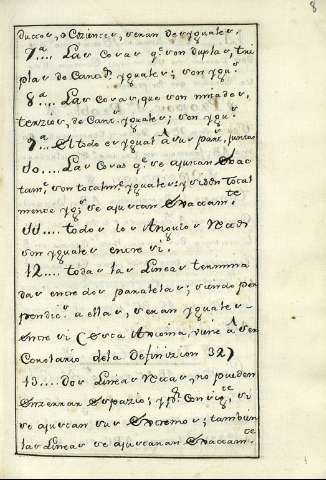 8
ductos, o Cozientes, seran desyguales.
7ª.... Las Cosas q.e son duplas, tri
plas de Cancᵈ. yguales; son yg.s
8ª.... Las cosas, que son mitades,
terzios, de Canᵗ. yguales; son yg.s
9ª... El todo es ygual â sus parᵗ. juntas
10.... Las Cosas q.e se ajustan Exac
tamᵗ. son totalmᵗ. yguales: y si son total
mente yg.s se ajustan Exactamᵗᵉ
11.... todos los Angulos Rectos
son yguales entre si.
12.... todas las Lineas termina
das entre dos paralelas; siendo per
pendicˢ. a ellas, seran yguales
entre si (Esta Axioma, viene â ser
Corolario dela Definizion 32)
13.... dos Lineas Rectas, no pueden
Enzerrar Espazio; y p.r Consigᵗᵉ, si
se ajustan sus Extremos; tambien
las Lineas se ajustaran Exactamᵗᵉ